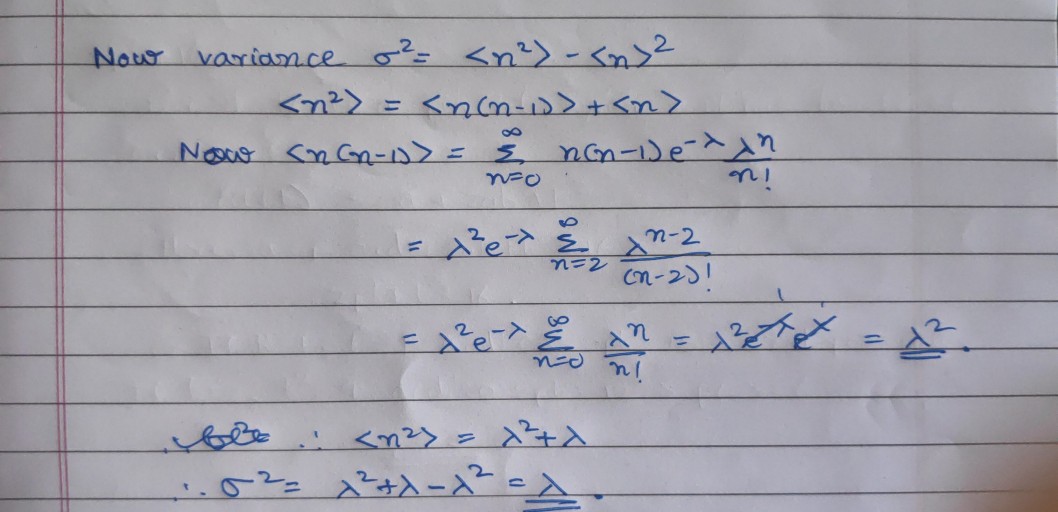 Now variance σ² = <n²> - <n>²
<n²> = <n(n-1)> + <n>
Now <n(n-1)> = ∑_{n=0}^{∞} n(n-1) e^{-λ} λ^n/n!
= λ² e^{-λ} ∑_{n=2}^{∞} λ^{n-2}/(n-2)!
= λ² e^{-λ} ∑_{n=0}^{∞} λ^n/n! = λ² e^{-λ} e^{λ} = λ².
∴ <n²> = λ² + λ
∴ σ² = λ² + λ - λ² = λ.